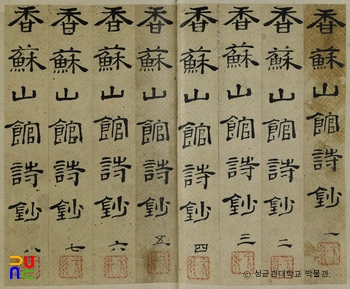 香蘇山館詩鈔 一
香蘇山館詩鈔 二
香蘇山館詩鈔 三
香蘇山館詩鈔 四
香蘇山館詩鈔 五
香蘇山館詩鈔 六
香蘇山館詩鈔 七
香蘇山館詩鈔 八
© 성균관대학교 박물관